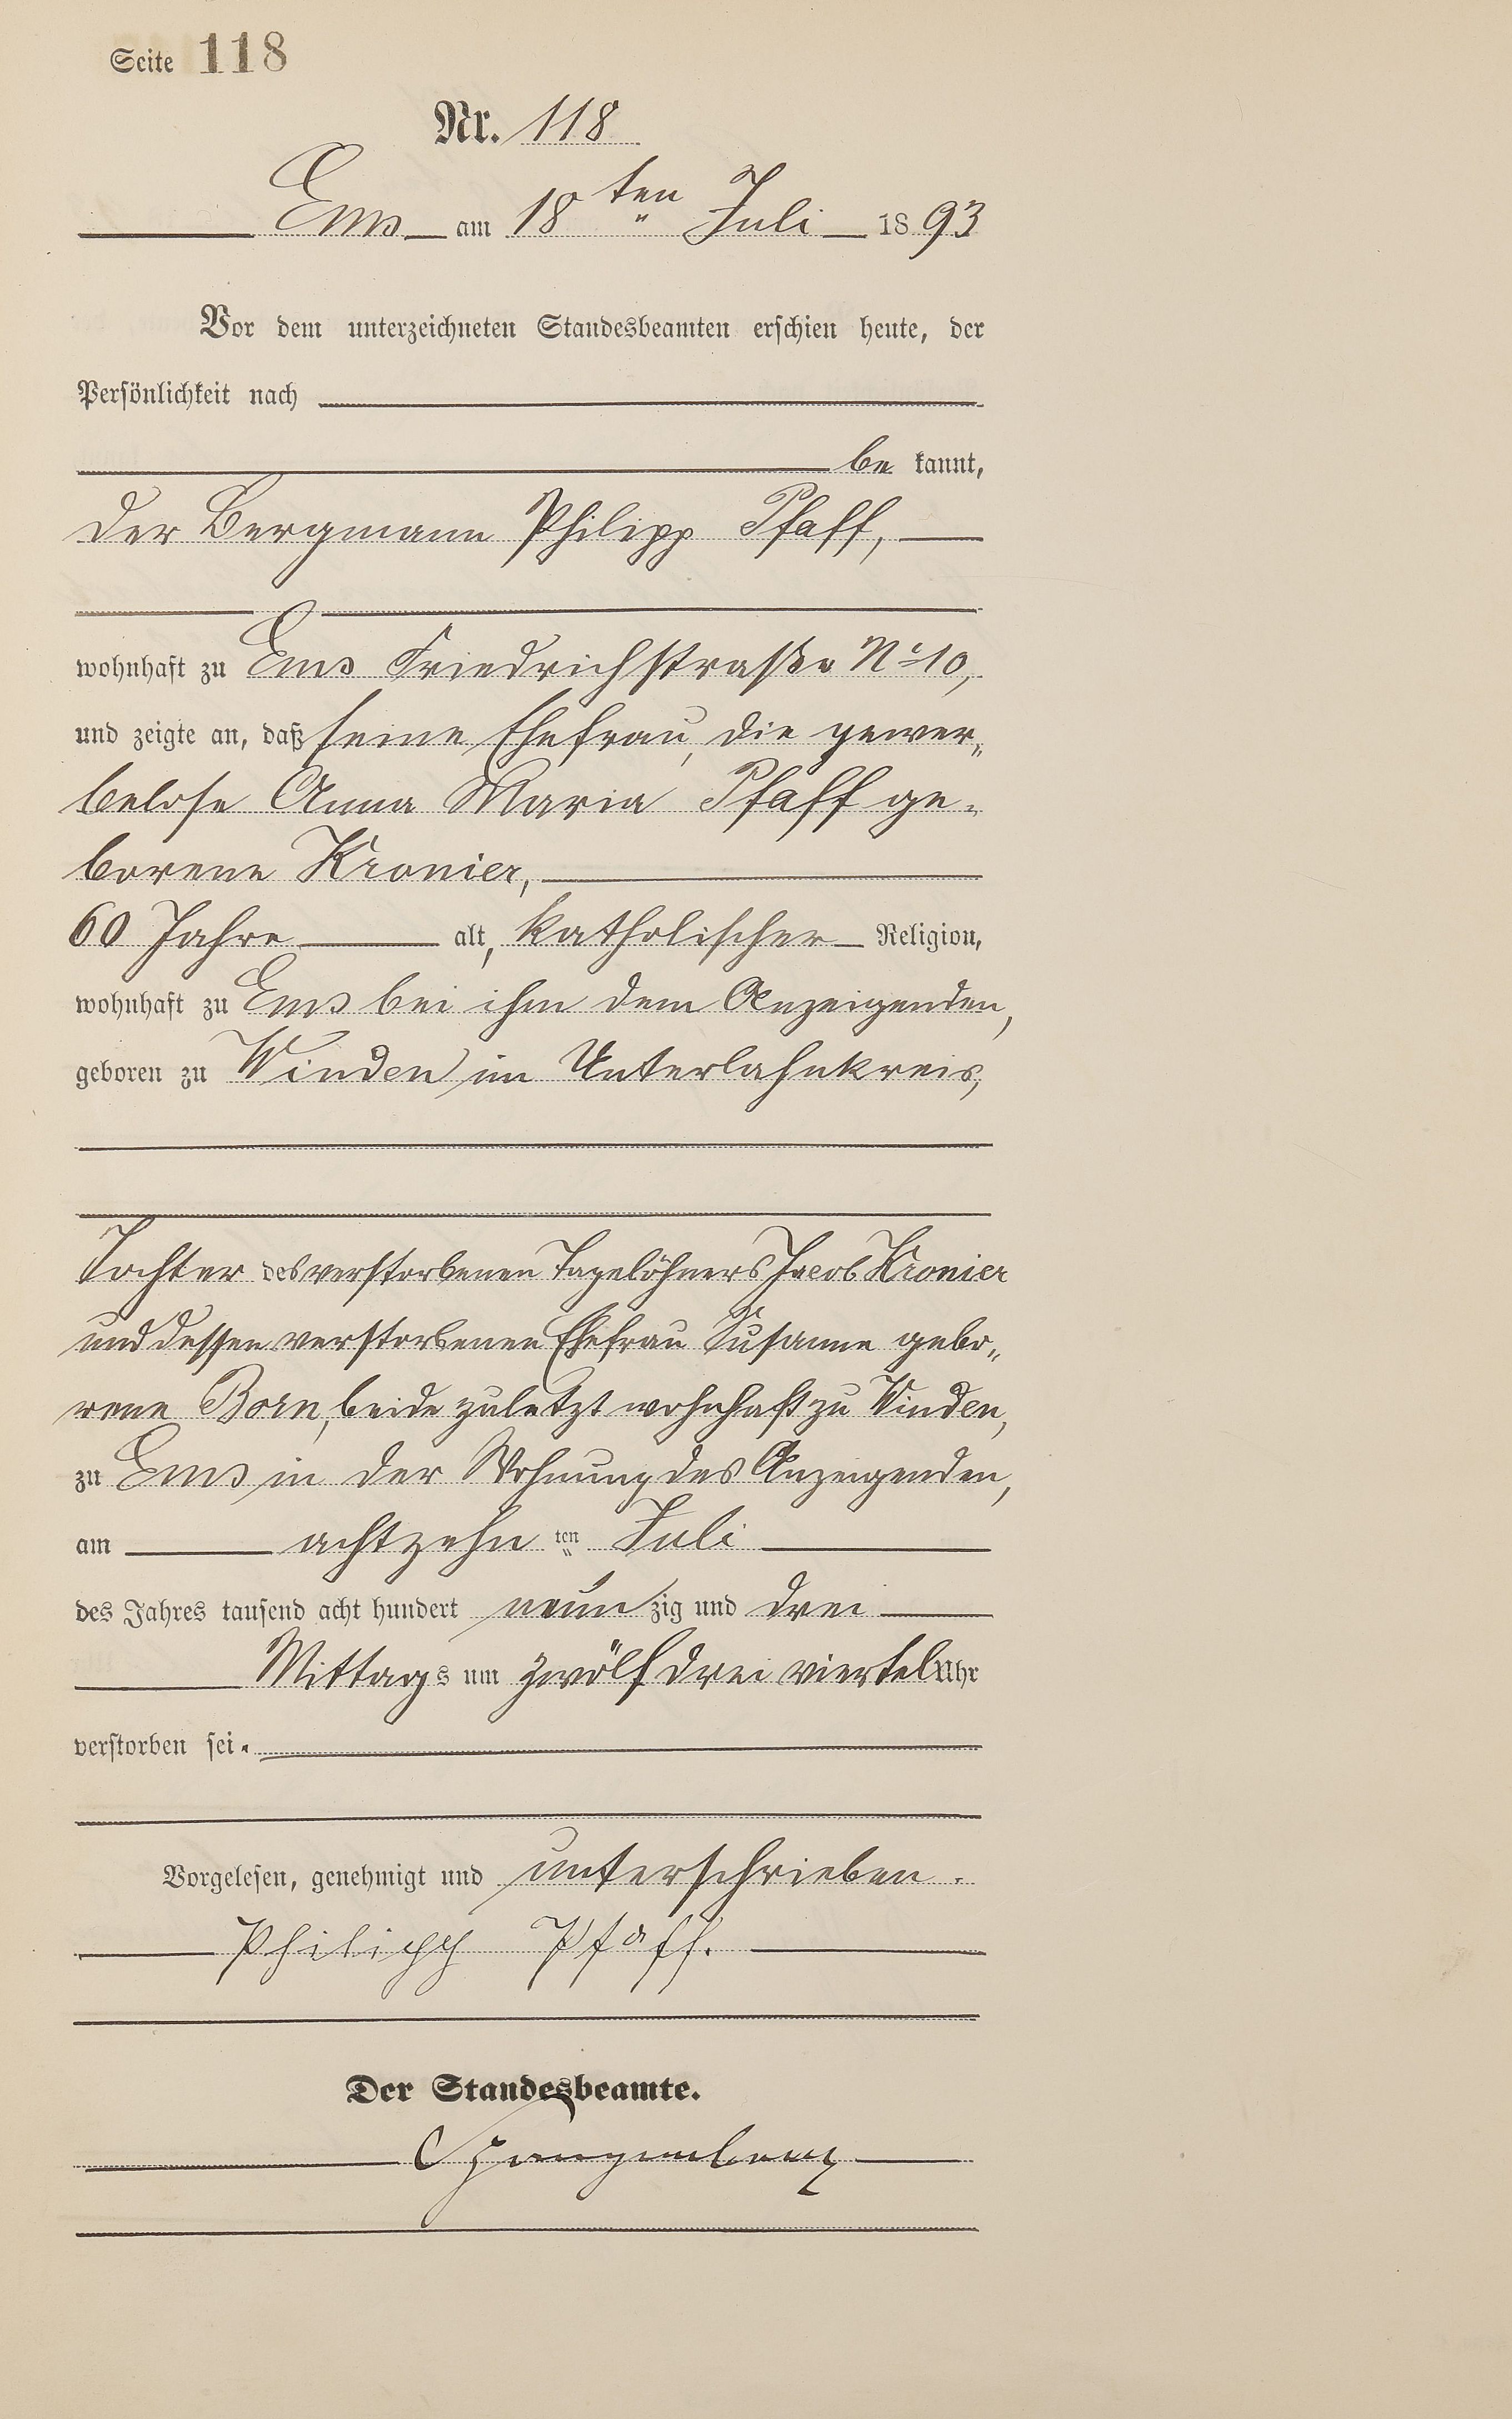 Seite 118
Nr. 118
Ems am 18ten Juli 1893
Vor dem unterzeichneten Standesbeamten erschien heute, der
Persönlichkeit nach
be kannt,
der Bergmann Philipp Pfaff,
wohnhaft zu Ems Friedrichstraße No 10,
und zeigte an, daß seine Ehefrau, die gewer„
belose Anna Maria Pfaff ge-
borene Kronier,
60 Jahre alt, katholischer Religion,
wohnhaft zu Ems bei ihm dem Anzeigenden,
geboren zu Winden im Unterlahnkreis,
Tochter des verstorbenen Tagelöhners Jacob Kronier
und dessen verstorbenen Ehefrau Susanne gebo„
rene Born, beide zuletzt wohnhaft zu Winden,
zu Ems in der Wohnung des Anzeigenden,
am achtzehn ten Juli
des Jahres tausend acht hundert neun zig und drei
Mittags um zwölf drei viertel Uhr
verstorben sei.
Vorgelesen, genehmigt und unterschrieben.
Philipp Pfaff.
Der Standesbeamte.